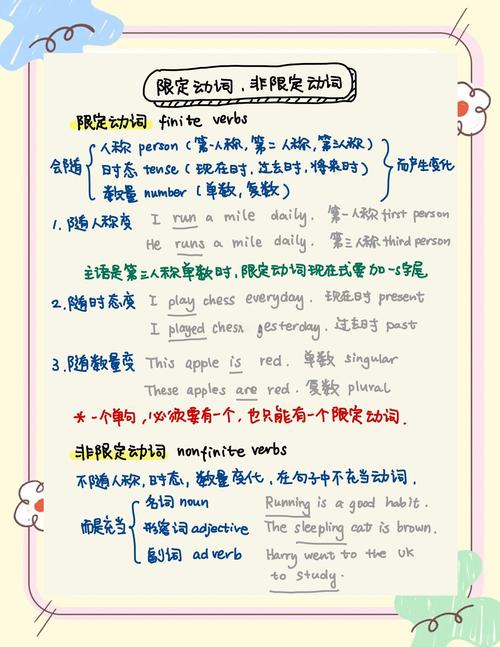 限定动词、非限定动词
限定动词 finite verbs
会随
人称 person (第一人称, 第二人称, 第三人称)
时态 tense (现在时, 过去时, 将来时)
数量 number (单数, 复数)
而产生变化
1. 随人称变 I run a mile daily. 第一人称 first person
He runs a mile daily. 第三人称 third person
主语是第三人称单数时, 限定动词现在式要加-s字尾
2. 随时态变 I play chess everyday. 现在时 present
I played chess yesterday. 过去时 past
3. 随数量变 This apple is red. 单数 singular
These apples are red. 复数 plural
* 一个单句, 必须要有一个, 也只能有一个限定动词.
非限定动词 nonfinite verbs
不随人称, 时态, 数量变化, 在句子中不充当动词.
而是充当
名词 noun Running is a good habit.
形容词 adjective The sleeping cat is brown.
副词 adverb Harry went to the UK
to study.